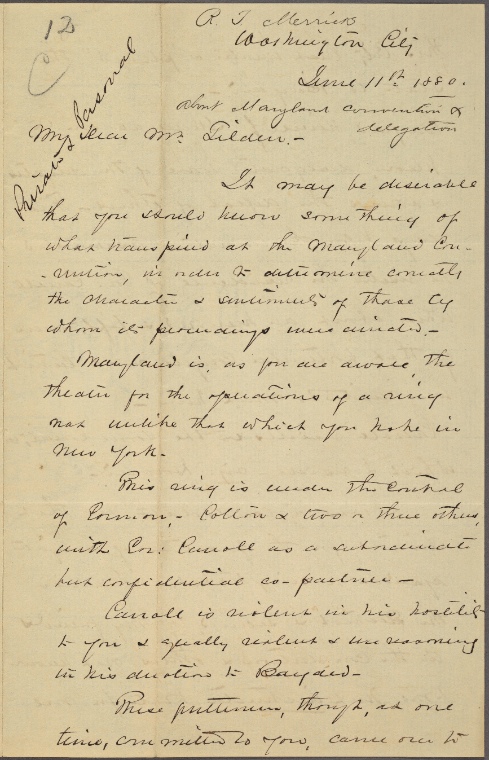 12
C
R. T. Merrick
Washington City
June 11th 1880.
about Maryland convention &
delegation
Private & Personal
My dear Mr. Tilden.-
It may be desirable
that you should know something of
what transpired at the Maryland Con-
-vention, in order to determine correctly
the character & sentiments of those by
whom its proceedings were directed.-
Maryland is, as you are aware, the
theatre for the operations of a ring
not unlike that which you broke in
New York.-
This ring is under the control
of Gorman,- Colton & two or three others,
with Gov: Carroll as a subordinate
but confidential co-partner-
Carroll is violent in his hostility
to you & equally violent & unreasoning
in his devotion to Bayard-
These gentlemen, though, at one
time, committed to you, came over to